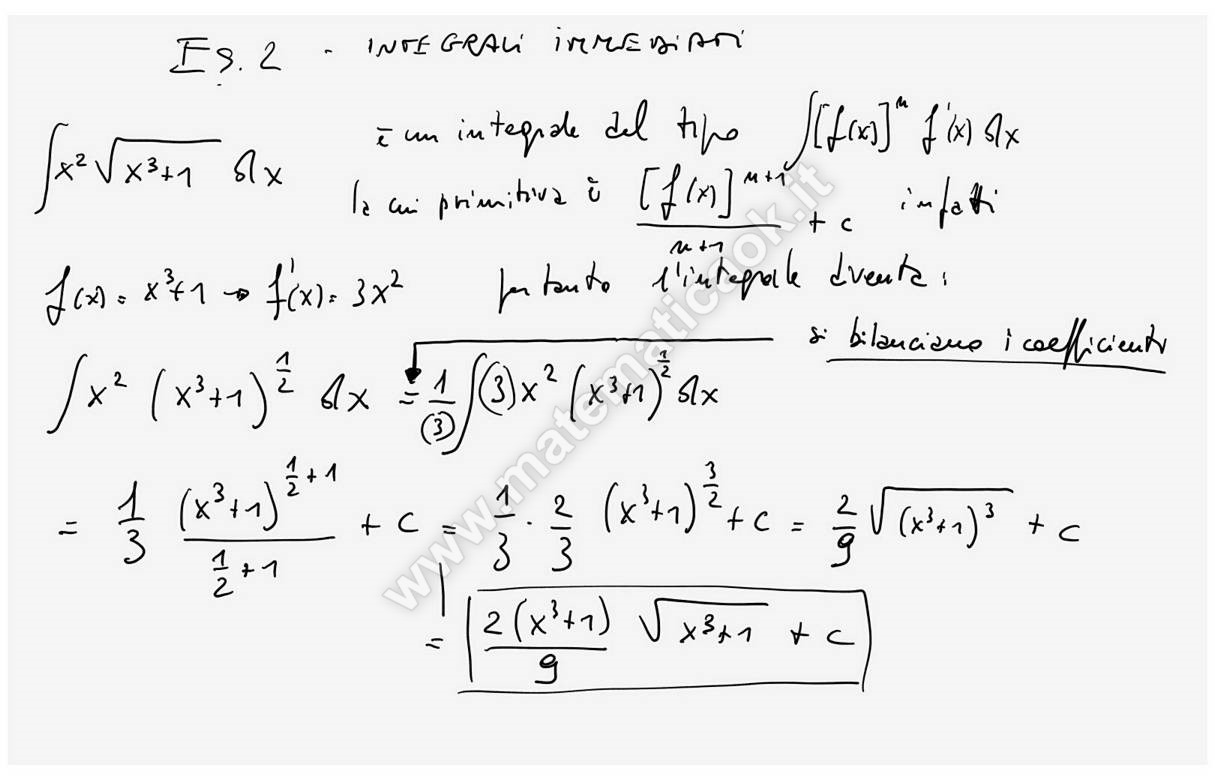 Es. 2 - INTEGRALI IMMEDIATI
∫x²√(x³+1) dx è un integrale del tipo ∫[f(x)]ⁿ f'(x) dx
la cui primitiva è [f(x)]ⁿ⁺¹/(n+1) + c infatti
f(x) = x³+1 → f'(x) = 3x² pertanto l'integrale dventa:
si bilanciano i coefficienti
∫x² (x³+1)^(1/2) dx = 1/(3) ∫(3)x² (x³+1)^(1/2) dx
= 1/3 (x³+1)^(1/2+1)/(1/2+1) + c = 1/3 · 2/3 (x³+1)^(3/2) + c = 2/9 √(x³+1)³ + c
= 2(x³+1)/9 √(x³+1) + c
www.matematicaok.it